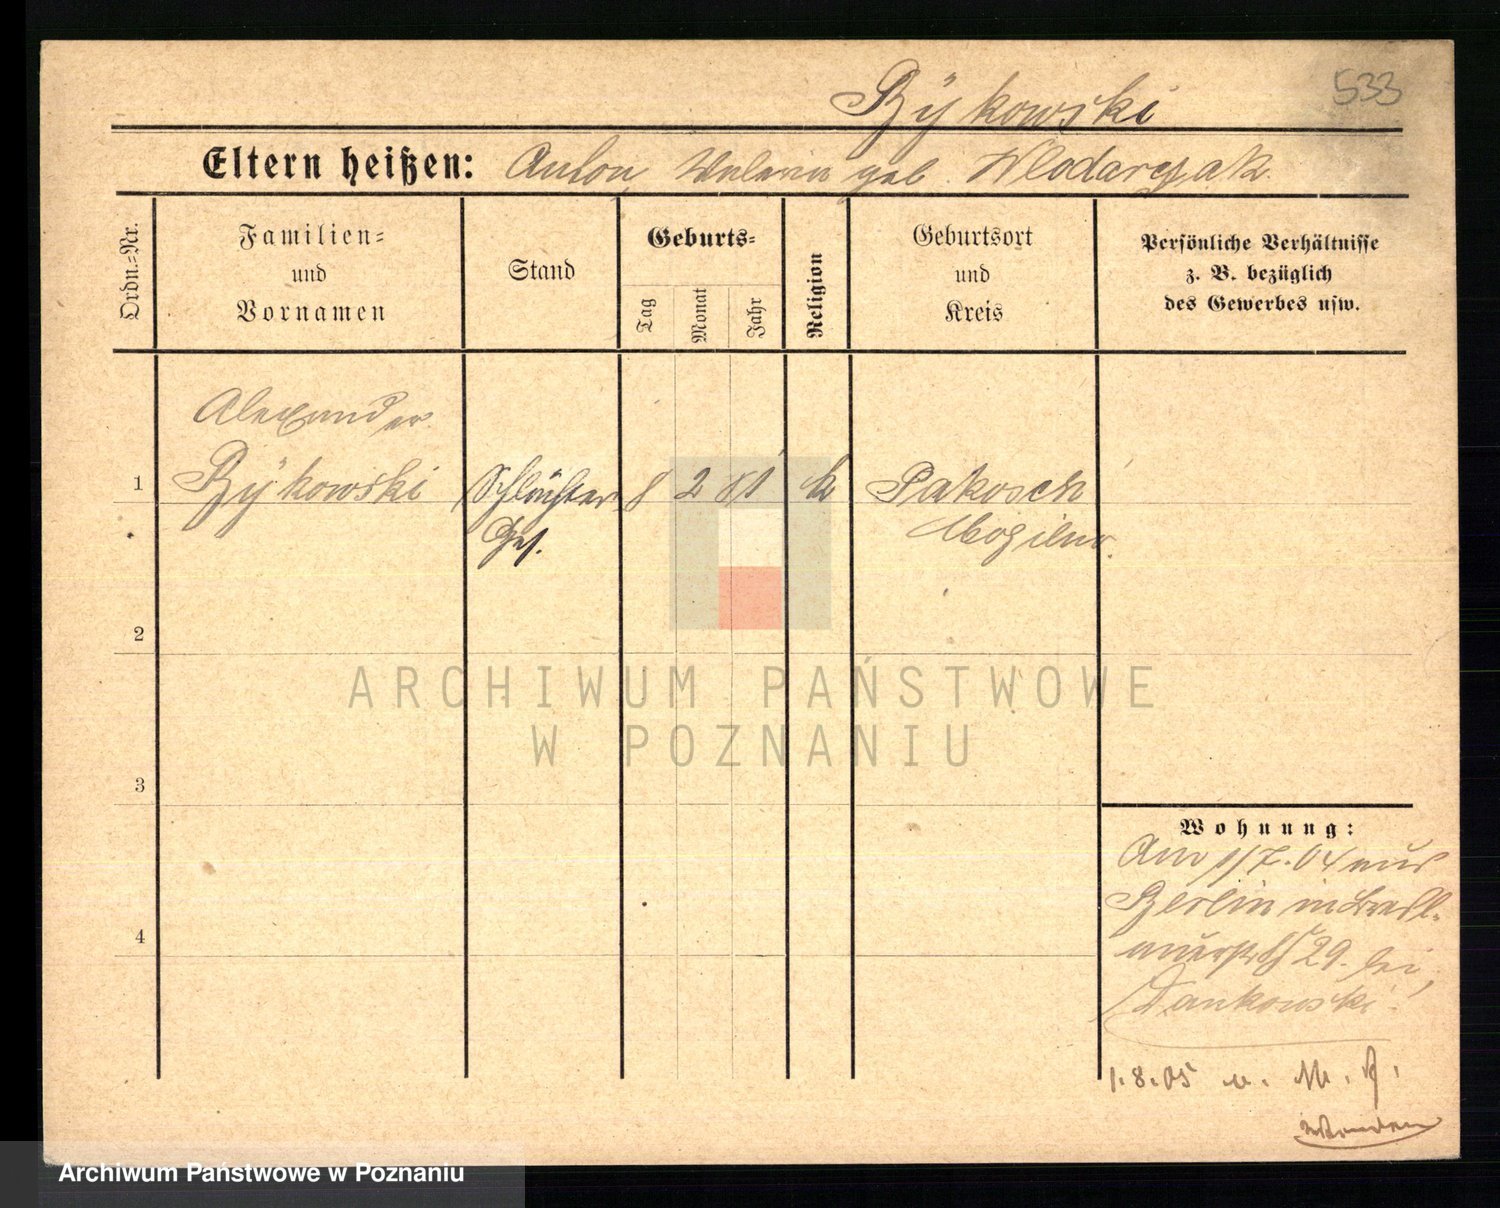 533
Bÿkowski
Eltern heißen: Anton, Valeria geb. Wlodarczak
Ordn.-Nr.
Familien-
und
Vornamen
Stand
Geburts-
Tag
Monat
Jahr
Religion
Geburtsort
und
Kreis
Persönliche Verhältnisse
z. B. bezüglich
des Gewerbes usw.
Alexander
1 Bÿkowski Schlächter 8 2 81 k Pakosch
Ges. Mogilno.
2
ARCHIWUM PAŃSTWOWE
W POZNANIU
3
4
Wohnung:
Am 1/7.04 aus
Berlin in
29. bei
Dankowski.
1.8.05 n.
Archiwum Państwowe w Poznaniu